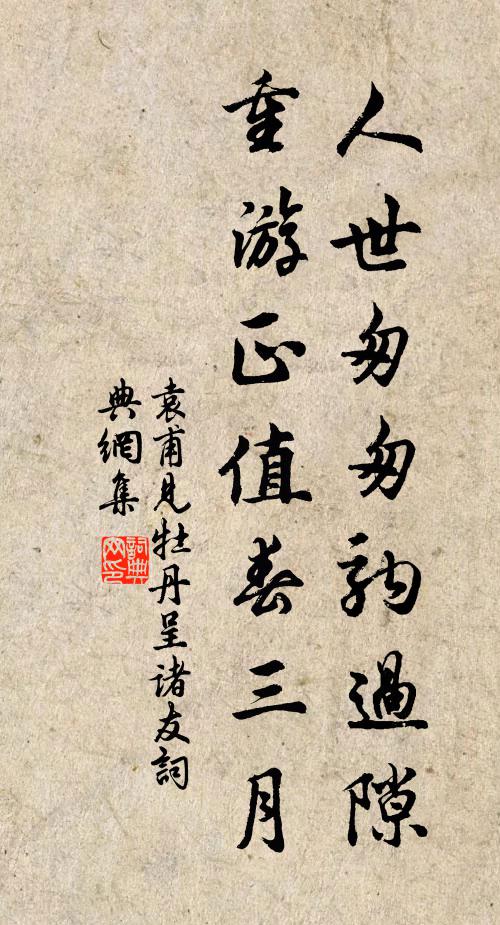 人世匆匆駒過隙
重游正值春三月
袁甫見牡丹呈诸友詞
典網集
詞典
网印